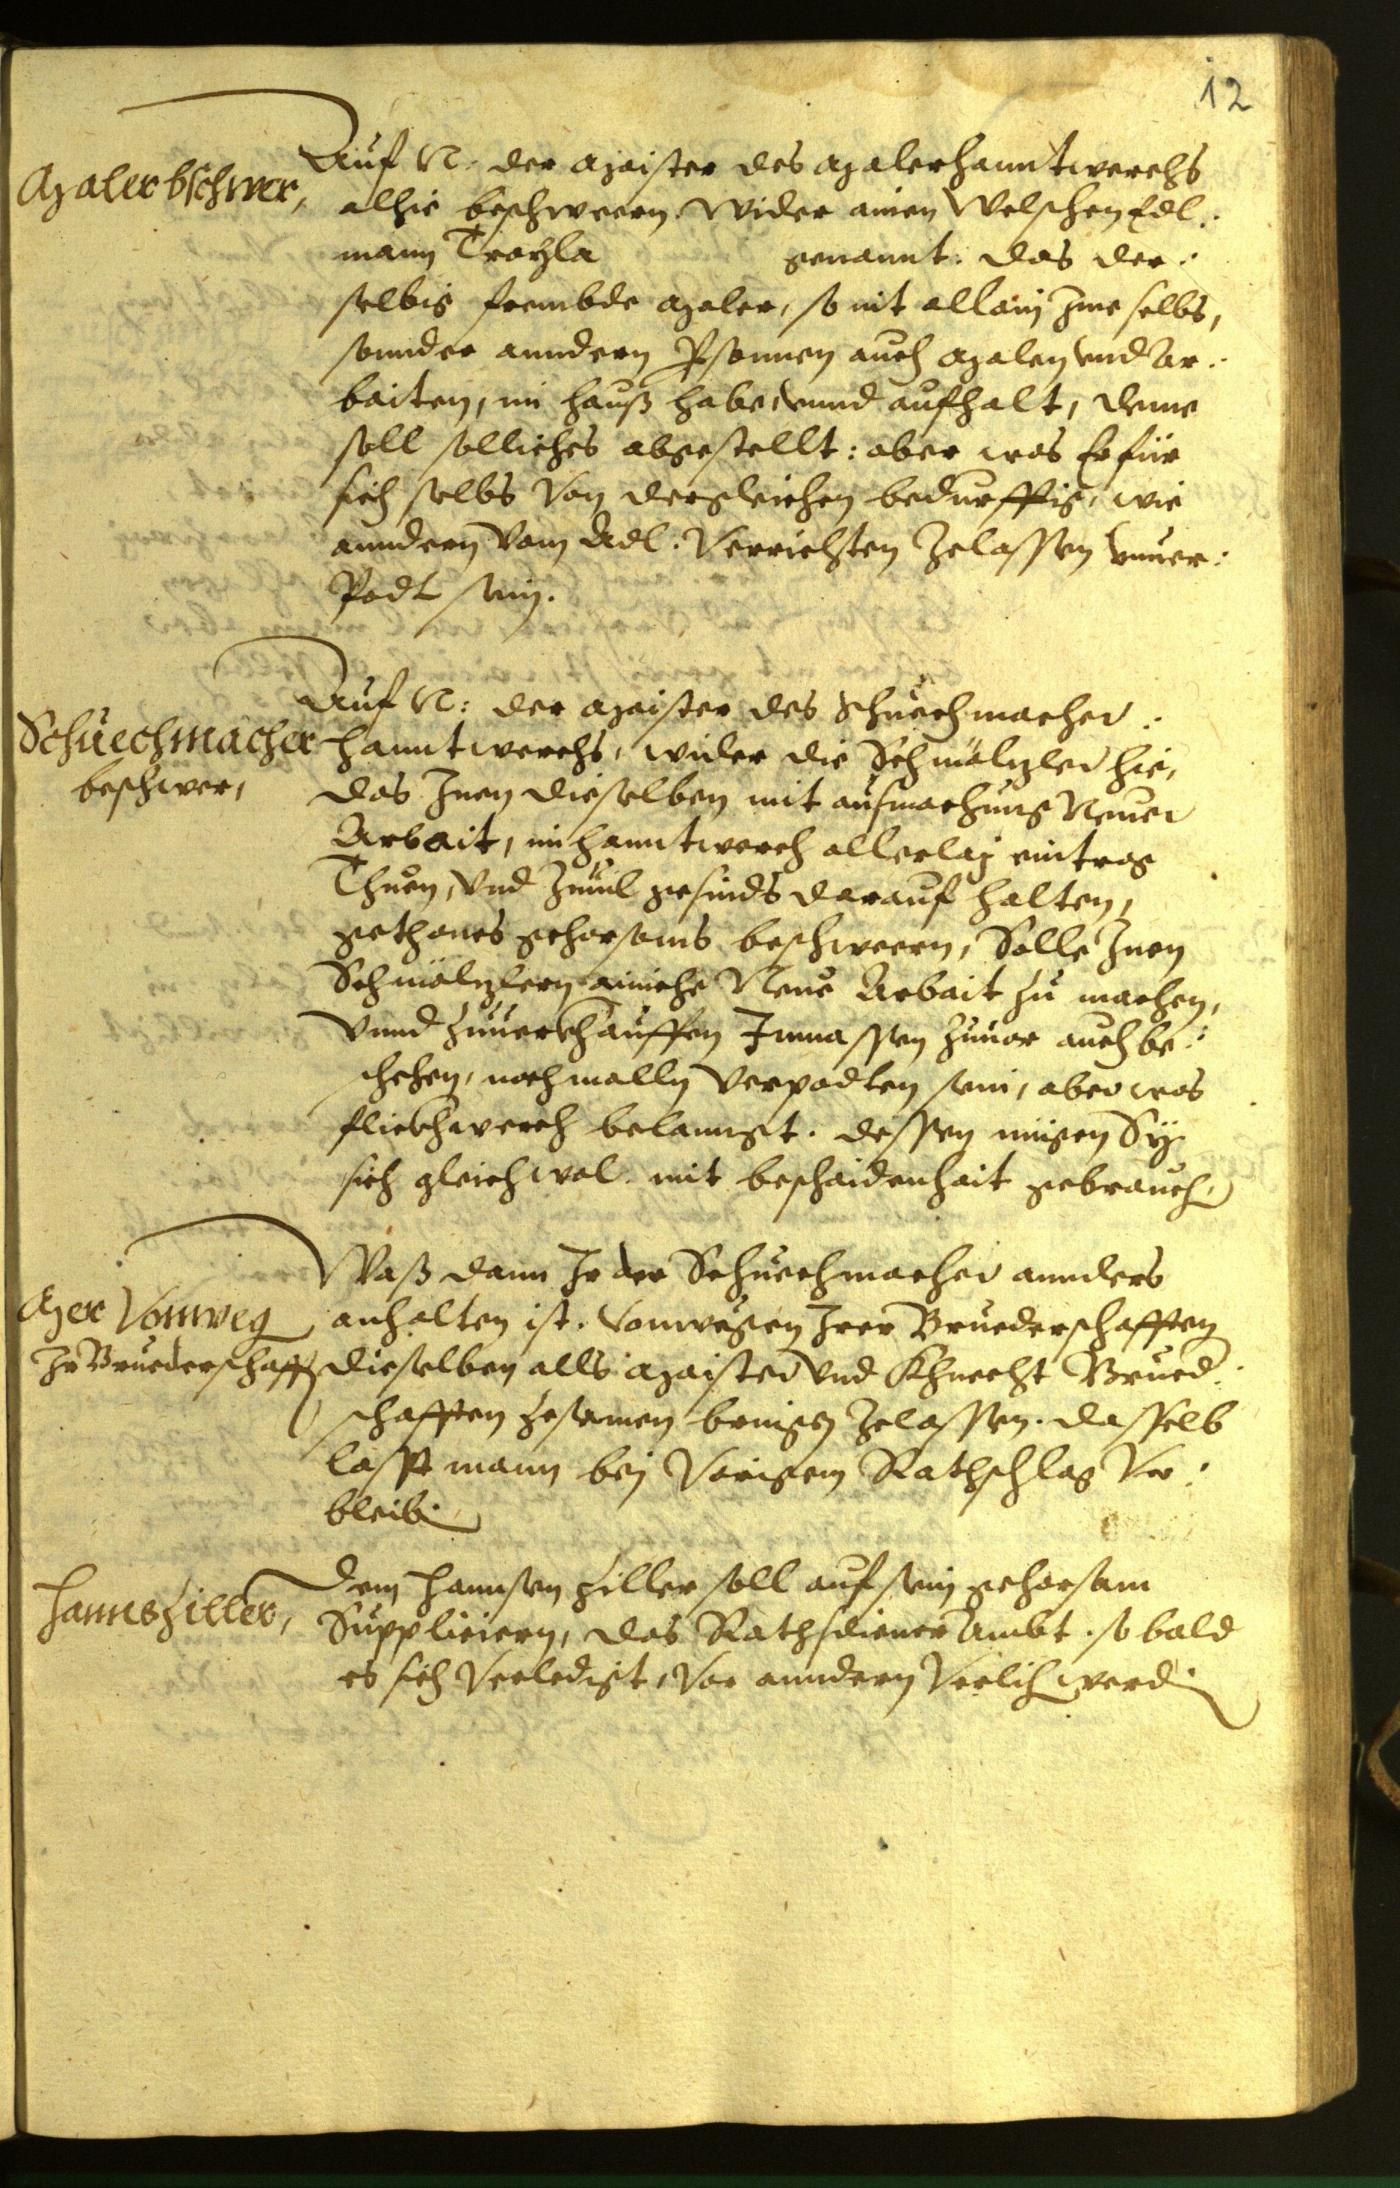 12
Maler bschwer,
Auf N: der Maister des Malerhanntwerchs
alhie beschweern. Wider ainen Welschen Edl:
mann Troyla genannt: das der:
selbig frembde Maler, so nit allain Jme selbs,
sonnder anndern Psonnen auch Malen vnd Ar:
baiten, im hauß habe vnnd aufhalt, deme
soll solliches abgestellt: aber was Er für
sich selbs Von dergleichen bedurfftig, wie
anndern Vom Adl. Verrichten Zelassen vnuer:
Podt sein.
Schuechmacher
beschwer,
Auf N: der Maister des Schuechmacher:
hanntwerchs, wider die Schmälzler hie,
das Jnen dieselben mit aufmachung Neuer
Arbait, im hanntwerch allerlaj eintrag
Thuen, Vnd Zuuil gesinds darauf halten,
gethones gehorsams beschweern, Solle Jnen
Schmälzlern ainiche Neue Arbait zu machen,
Vnnd zuuerkhauffen Jnmassen zuuor auch be:
schehen, nochmalln Verpodten sein, aber was
flickhwerch belanngt. dessen mügen Sy
sich gleichwol mit beschaidenhait gebrauch
Mer Vonweg
Jr Bruederschafft
Waß dann Jr der Schuechmacher annders
anhalten ist. Vonwegen Jrer Bruederschafften
dieselben alls Maister Vnd Khnecht Brued:
schafften zesamen bringen Zelassen. dasselb
lasst mann bej Vorigem Rathschlag Ver:
bleib
Hanns Ziller,
Dem Hannsen Ziller soll auf sein gehorsam
Supplicieren, das Rathsdiener Ambt. so bald
es sich Verledigt, Vor anndern Verlich werd